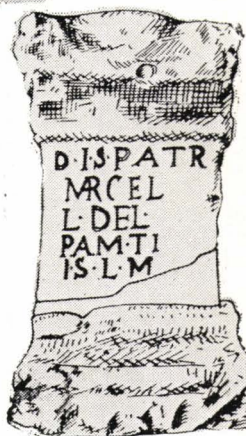 D·I·S·PATR
MRCEL
L·DEL·
PAM·TI
IS·L·M